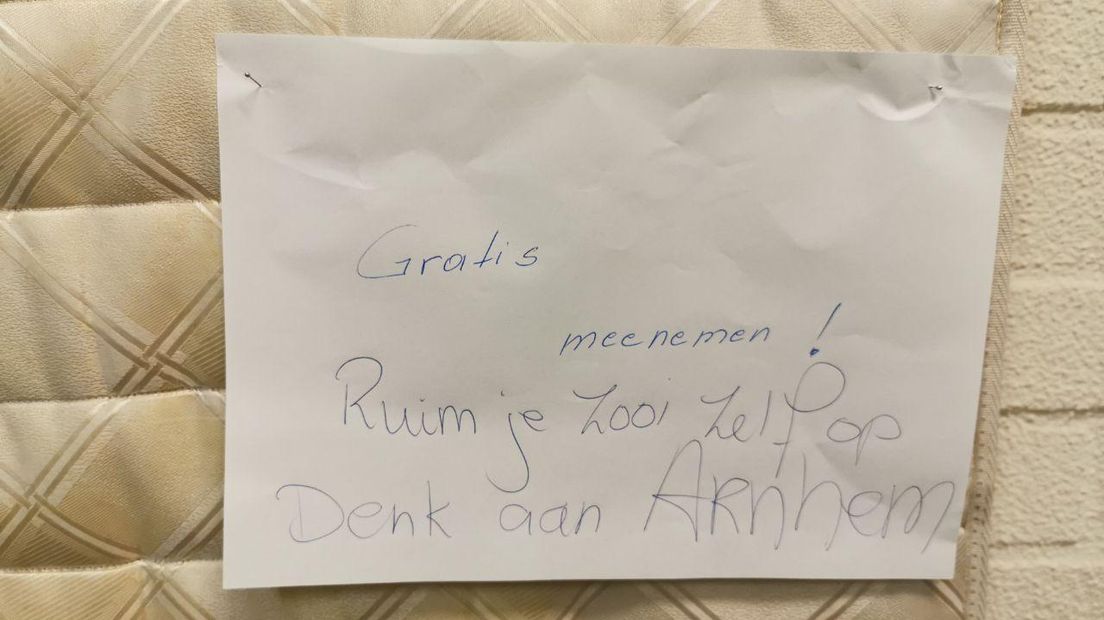 Gratis
meenemen !
Ruim je zooi zelf op
Denk aan Arnhem